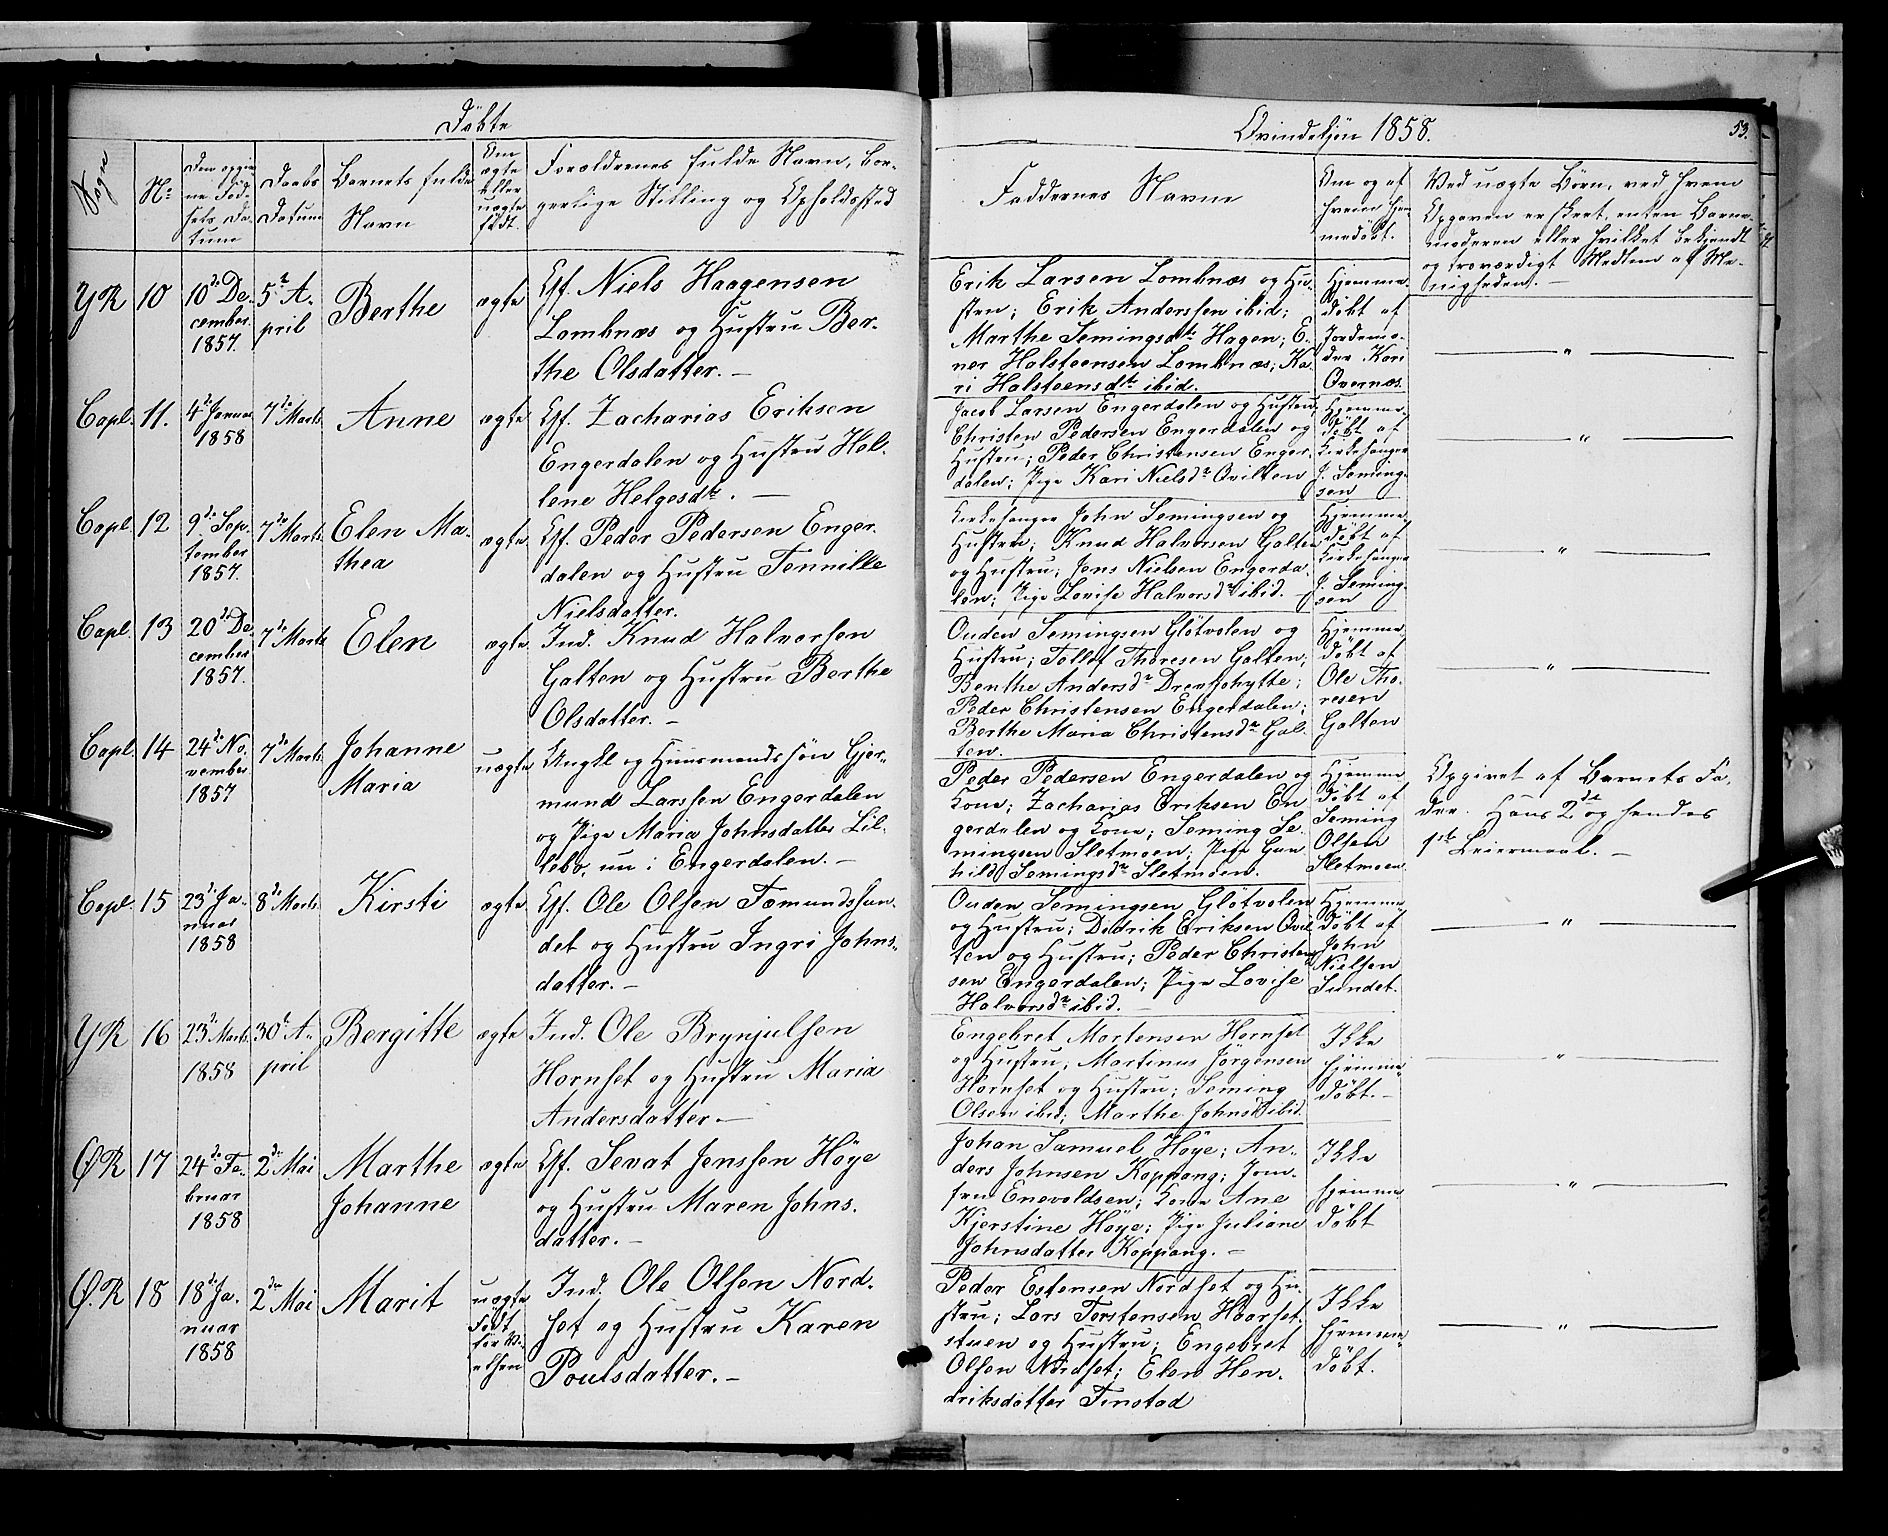 Döbte
Qvindekjön 1858.
53.
Sogne
No
Den opgiv
ne Föd-
sels Da-
tum
Daabs
Datum
Barnets fulde
Navn
Om
ægte
eller
uægte
födt.
Forældrenes fulde Navn, bor-
gerlige Stilling og Opholdssted
Faddernes Navne
Om og af
hvem hjem
medöbt.
Ved uægte Börn, ved hvem
Opgaven er skeet, enten Barne-
moderen eller hvilket bekjendt
og troværdigt Medlem af Me-
nigheden. —
YR 10
10de De-
cember
1857.
5te A-
pril
Berthe
ægte
Gf. Niels Haagensen
Lombnæs og Hustru Ber-
the Olsdatter. —
Erik Larsen Lombnæs og Hu-
stru; Erik Anderssen ibid;
Marthe Semingsdtr Hagen; E-
ner Halsteensen Lombnæs; Ka-
ri Halsteensdtr ibid.
Hjemme-
döbt af
Jordemo-
der Kari
Overnæs.
— " —
Capl. 11.
4de Januar
1858
7de Marts
Anne
ægte
Gf. Zacharias Eriksen
Engerdalen og Hustru Hal-
lene Helgesdtr. —
Jacob Larsen Engerdalen og Hustru;
Christen Pedersen Engerdalen og
Hustru; Peder Christensen Enger-
dalen; Pige Kari Nielsdr Qvilten
Hjemme-
döbt af
Kirkesanger
J. Seming-
sen
— " —
Capl. 12
9de Sep-
tember
1857.
7de Marts
Elen Ma-
thea
ægte
Gf. Peder Pedersen Enger-
dalen og Hustru Tennille
Nielsdatter.
Kirkesanger John Semingsen og
Hustru; Knud Halvorsen Galten
og Hustru; Jens Nielsen Engerda-
len; Pige Lovise Halvorsdr ibid. —
Hjemme-
döbt af
Kirkesanger
J. Seming-
sen
— " —
Capl. 13
20de De
cember
1857.
7de Marts
Elen
ægte
Ind. Knud Halvorsen
Galten og Hustru Berthe
Olsdatter. —
Ouden Semingsen Glötvolen og
Hustru; Tollef Thoresen Galten;
Benthe Andersdr Drevsjohytte;
Peder Christensen Engerdalen;
Berthe Maria Christensdr Gal-
ten.
Hjemme-
döbt af
Ole Tho-
resen
Galten
— " —
Capl. 14
24de No-
vember
1857
7de Marts
Johanne
Maria
uægte
Ungkl og Huusmandssön Gjer-
mund Larssen Engerdalen
og Pige Maria Johnsdatter Lil-
lebo, nu i Engerdalen. —
Peder Pedersen Engerdalen og
Kone; Zacharias Eriksen En
gerdalen og Kone; Seming Se-
mingsen Sletmoen; Pige Gun
hild Semingsdr Sletmoen.
Hjemme
döbt af
Seming
Olsen
Sletmoen
Opgivet af Barnets Fa-
der. Hans 2de og hendes
1ste Leiermaal. —
Capl. 15
23de Ja-
nuar
1858
8de Marts
Kirsti
ægte
Gf. Ole Olsen Fæmundssun-
det og Hustru Ingri Johns-
datter. —
Ouden Semingsen Glötvolen
og Hustru; Didrik Eriksen Qvil
ten og Hustru; Peder Christen
sen Engerdalen; Pige Lovise
Halvorsdr ibid. —
Hjemme
döbt af
John
Nielsen
Sundet.
— " —
YR 16
23de Marts
1858
30te A-
pril
Bergitte
ægte
Ind. Ole Brynjulsen
Hornset og Hustru Maria
Andersdatter —
Engebret Mortensen Hornset
og Hustru; Martinus Jörgensen
Hornset og Hustru; Seming
Olsen ibid; Marthe Johnsd ibid.
Ikke
hjemme-
döbt. —
— " —
ØR 17
24de Fe-
bruar
1858
2den Mai
Marthe
Johanne
ægte
Gf. Sevat Jenssen Höye
og Hustru Maren Johns-
datter. —
Johan Samuel Höye; An-
ders Johnsen Koppang; Jom-
fru Enevoldsen; Kone Ane
Kjerstine Höye; Pige Juliane
Johnsdatter Koppang. —
Ikke
hjemme
döbt
— " —
Ø.R 18
18de Ja-
nuar
1858
2den Mai
Marit
uægte
Födt
för Vi-
elsen
Ind. Ole Olsen Nord-
set og Hustru Karen
Poulsdatter. —
Peder Estensen Nordset og Hu-
stru; Lars Torstensen Haarset-
stuen og Hustru; Engebret
Olsen Nordset; Elen Hen-
driksdatter Finstad
Ikke
hjemme-
döbt.
— " —